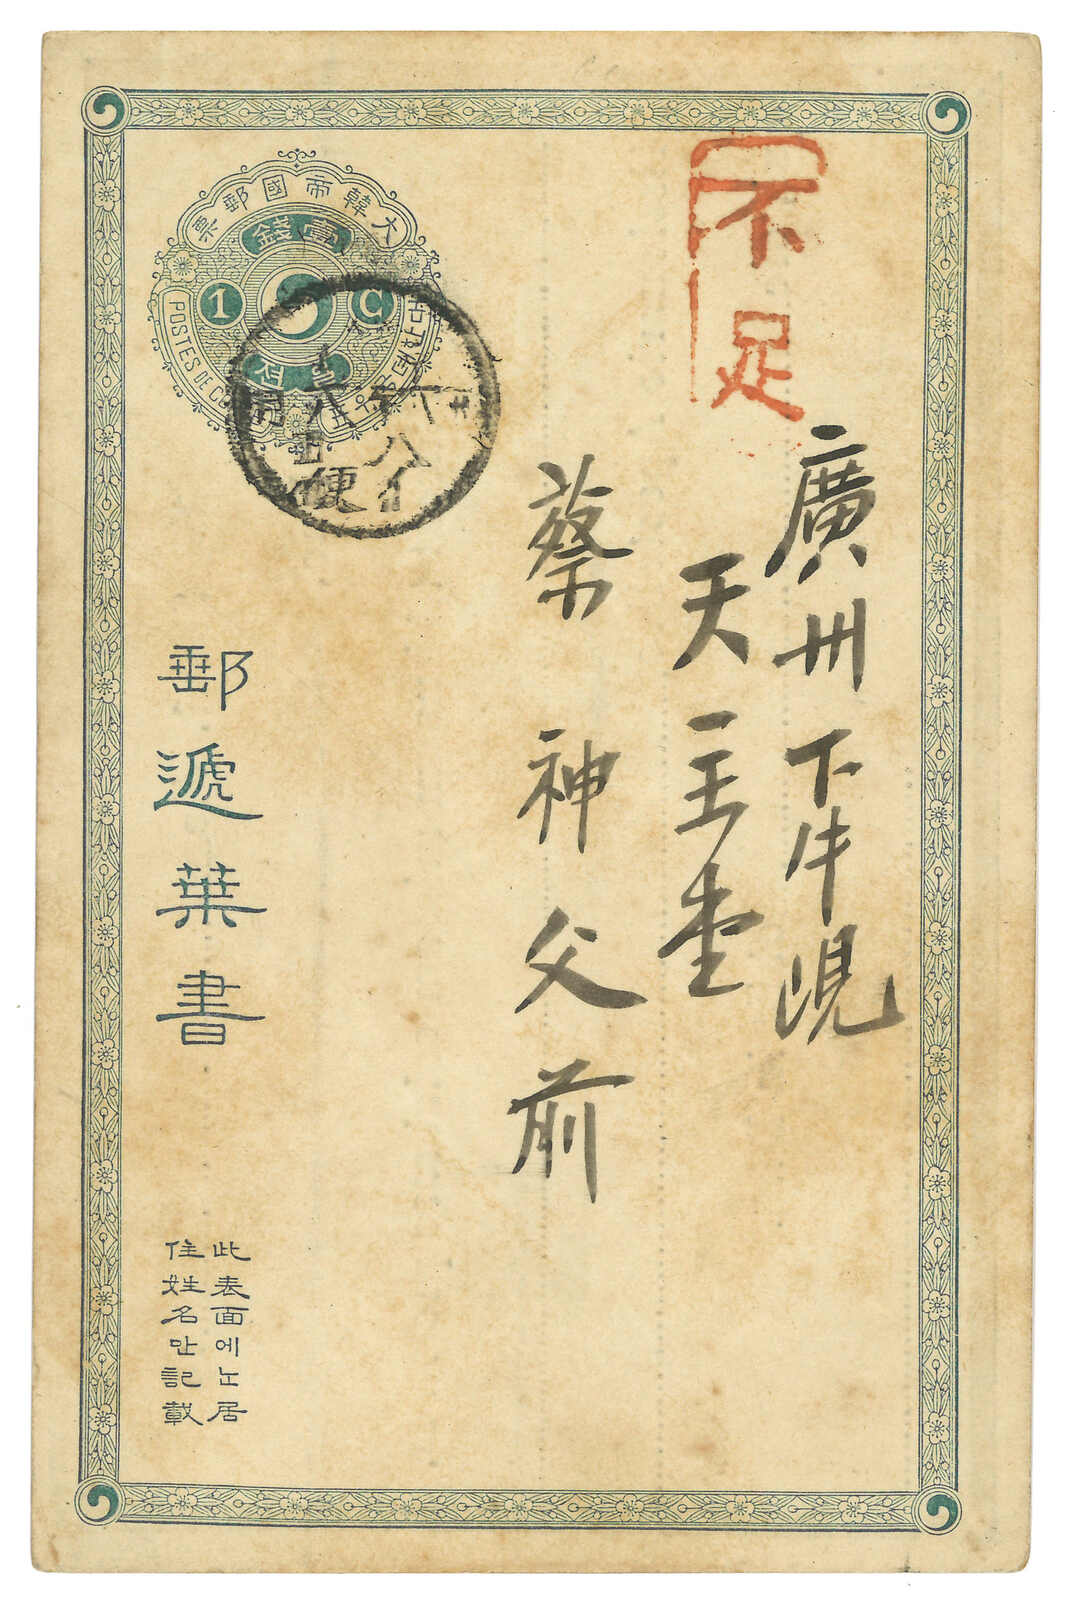 大韓帝國郵票
壹錢
1 C
POSTES DE
不足
廣州下牛峴
天主堂
蔡神父前
郵遞葉書
此表面에ᄂᆞᆫ居
住姓名만記載